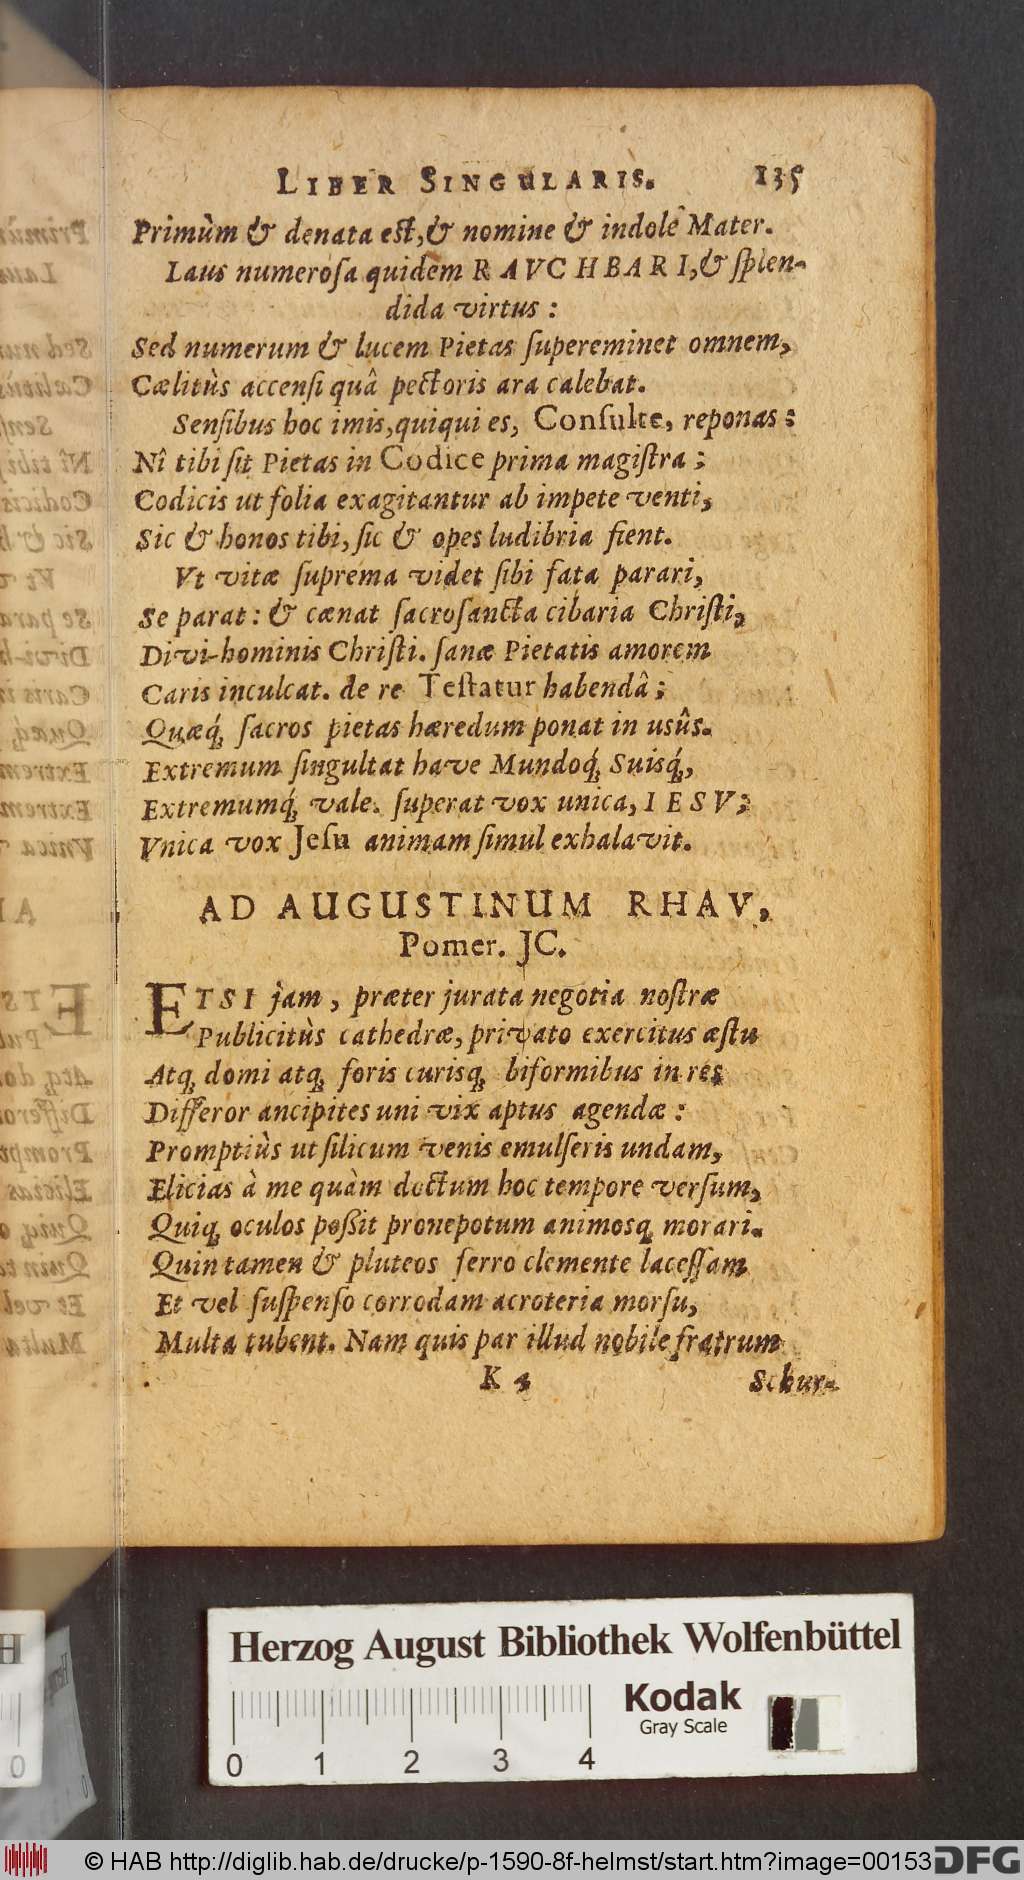 LIBER SINGULARIS. 135
Primùm & denata est, & nomine & indole Mater.
Laus numeroſa quidem RAVCHBARI, & ſplen-
dida virtus:
Sed numerum & lucem Pietas ſupereminet omnem,
Cælitùs accenſi quâ pectoris ara calebat.
Senſibus hoc imis, quiqui es, Conſulte, reponas:
Nî tibi ſit Pietas in Codice prima magiſtra;
Codicis ut folia exagitantur ab impete venti,
Sic & honos tibi, ſic & opes ludibria fient.
Vt vitæ ſuprema videt ſibi fata parari,
Se parat: & cænat ſacroſancta cibaria Chriſti,
Divi-hominis Chriſti. ſanæ Pietatis amorem
Caris inculcat. de re Teſtatur habendâ;
Quæq́; ſacros pietas hæredum ponat in usûs.
Extremum ſingultat have Mundoq́; Suisq́;,
Extremumq́; vale. ſuperat vox unica, IESV;
Vnica vox Jeſu animam ſimul exhalavit.
AD AUGUSTINUM RHAV,
Pomer. JC.
ETSI jam, præter jurata negotia noſtræ
Publicitùs cathedræ, privato exercitus æſtu
Atq; domi atq; foris curisq; biformibus in res
Differor ancipites uni vix aptus agendæ:
Promptiùs ut ſilicum venis emulſeris undam,
Elicias à me quàm doctum hoc tempore verſum,
Quiq; oculos poßit pronepotum animosq; morari.
Quin tamen & pluteos ferro clemente laceſſam
Et vel ſuſpenſo corrodam acroteria morſu,
Multa iubent. Nam quis par illud nobile fratrum
K 4 Schur-
Herzog August Bibliothek Wolfenbüttel
Kodak
Gray Scale
0 1 2 3 4
© HAB http://diglib.hab.de/drucke/p-1590-8f-helmst/start.htm?image=00153
DFG